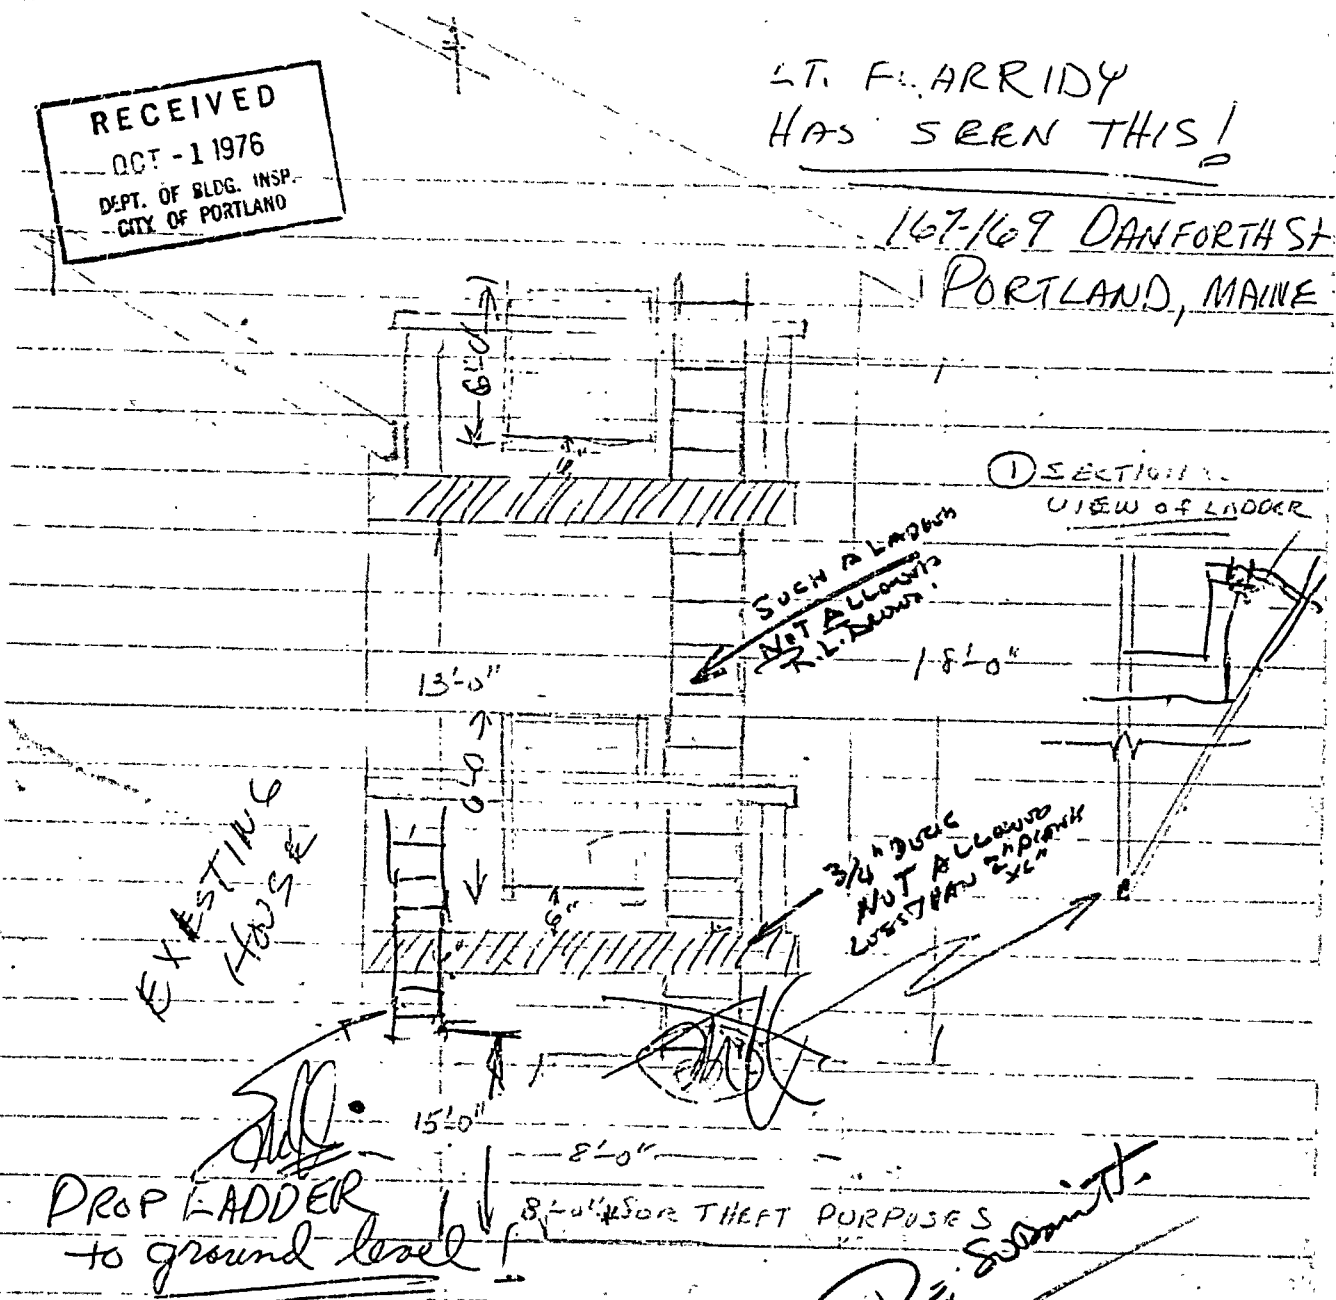 RECEIVED
OCT - 1 1976
DEPT. OF BLDG. INSP.
CITY OF PORTLAND
LT. ARRIDY
HAS SEEN THIS!
167-169 DANFORTH St
PORTLAND, MAINE
6'-0"
6"
① SECTION
VIEW OF LADDER
SUCH A LADDER
NOT ALLOWED
R.L.
13'-0"
18'-0"
6'-0
EXISTING
HOUSE
3/4" DECK
NOT ALLOWED
LESS THAN 2" PLANK
6"
15'-0"
8'-0"
DROP LADDER
to ground level!
8'-0" FOR THEFT PURPOSES
RE-Submit.